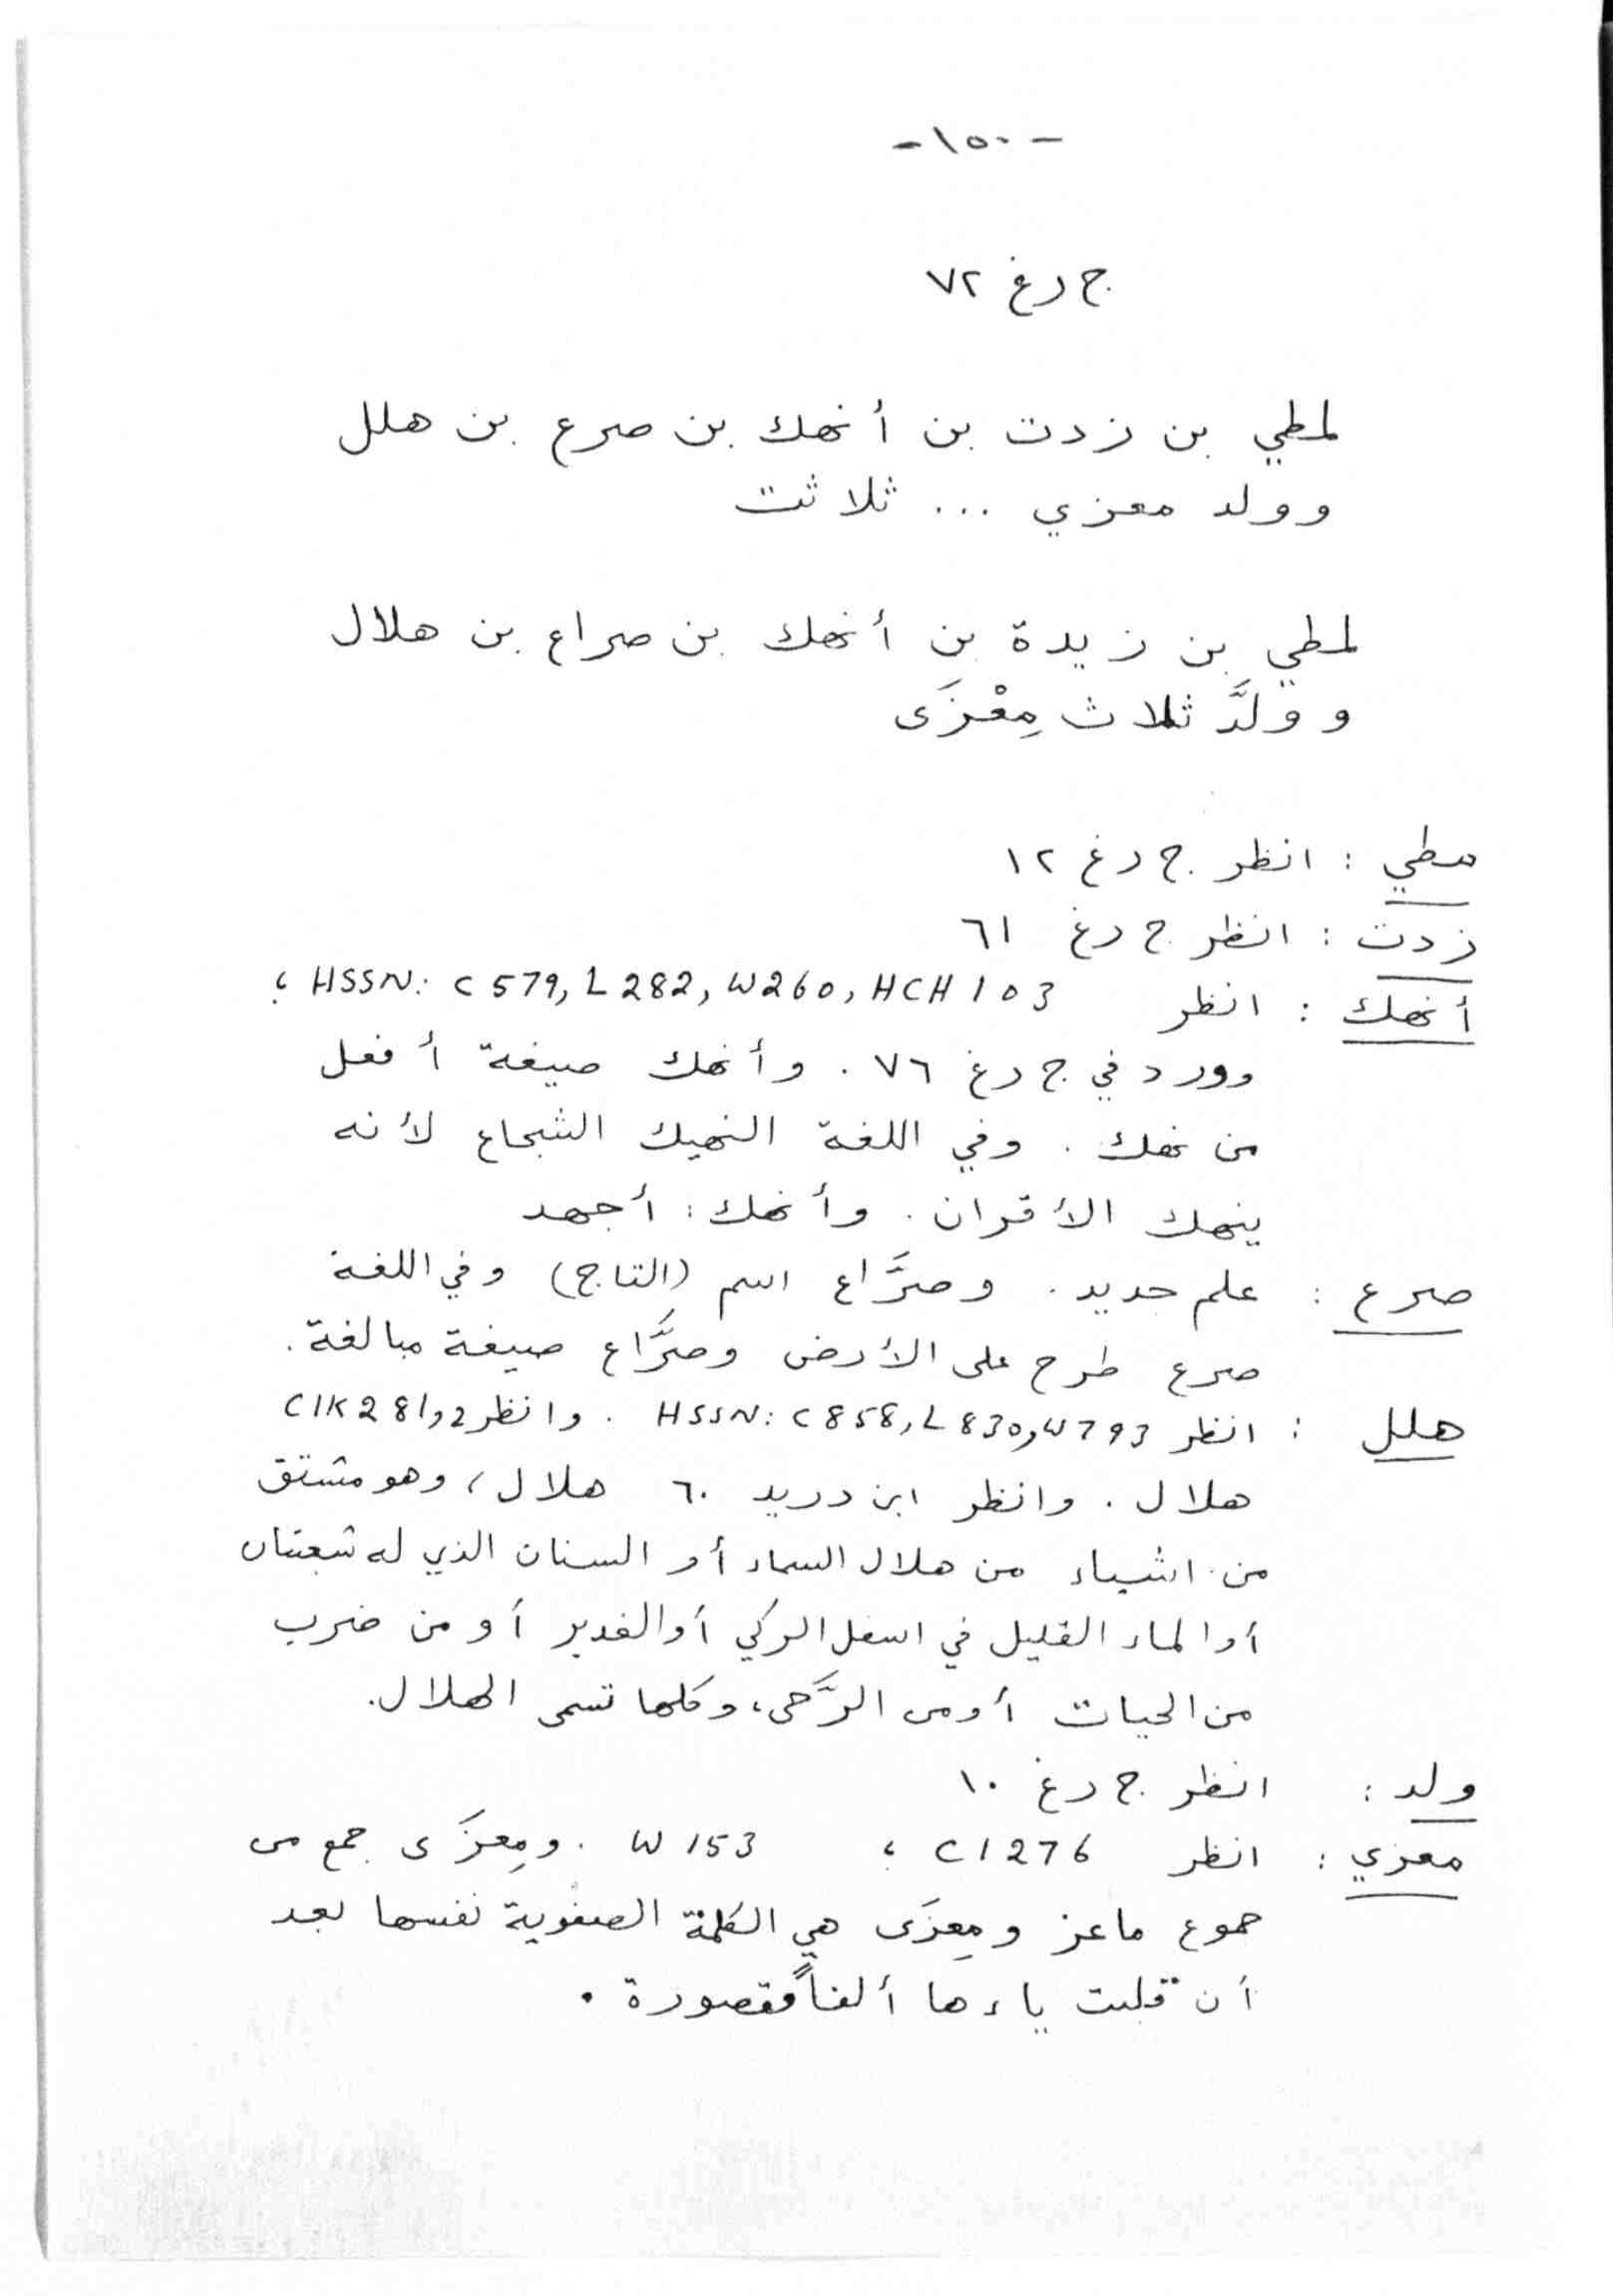 - ١٥٠ -
ج ر غ ٧٢
لمطي بن زدت بن أنهك بن صرع بن هلل
وولد معزي ... ثلاثت
لمطي بن زيدة بن أنهك بن صراع بن هلال
وولَّد ثلاث مِعْزَى
مطي : انظر ج ر غ ١٢
زدت : انظر ج ر غ ٦١
أنهك : انظر HSSN: C 579, L 282, W260, HCH 103 ؛
وورد في ج ر غ ٧٦ . وأنهك صيغة أفعل
من نهك . وفي اللغة النهيك الشجاع لأنه
ينهك الأقران . وأنهك : أجهد
صرع : علم جديد . وصرَّاع اسم (التاج) وفي اللغة
صرع طرح على الأرض وصرَّاع صيغة مبالغة .
هلل : انظر HSSN: C 858, L 830, W 793 . وانظر CIK 281,2
هلال . وانظر ابن دريد ٦٠ هلال ، وهو مشتق
من اشياء من هلال السماء أو السنان الذي له شعبتان
أو الماء القليل في اسفل الركي أو الغدير أو من ضرب
من الحيات أو من الرَّحى ، وكلها تسمى الهلال .
ولد : انظر ج ر غ ١٠
معزي : انظر C 1276 ؛ W 153 . ومِعزَى جمع من
جموع ماعز ومِعزَى هي الكلمة الصفوية نفسها بعد
أن قلبت ياءها ألفاً مقصورة .